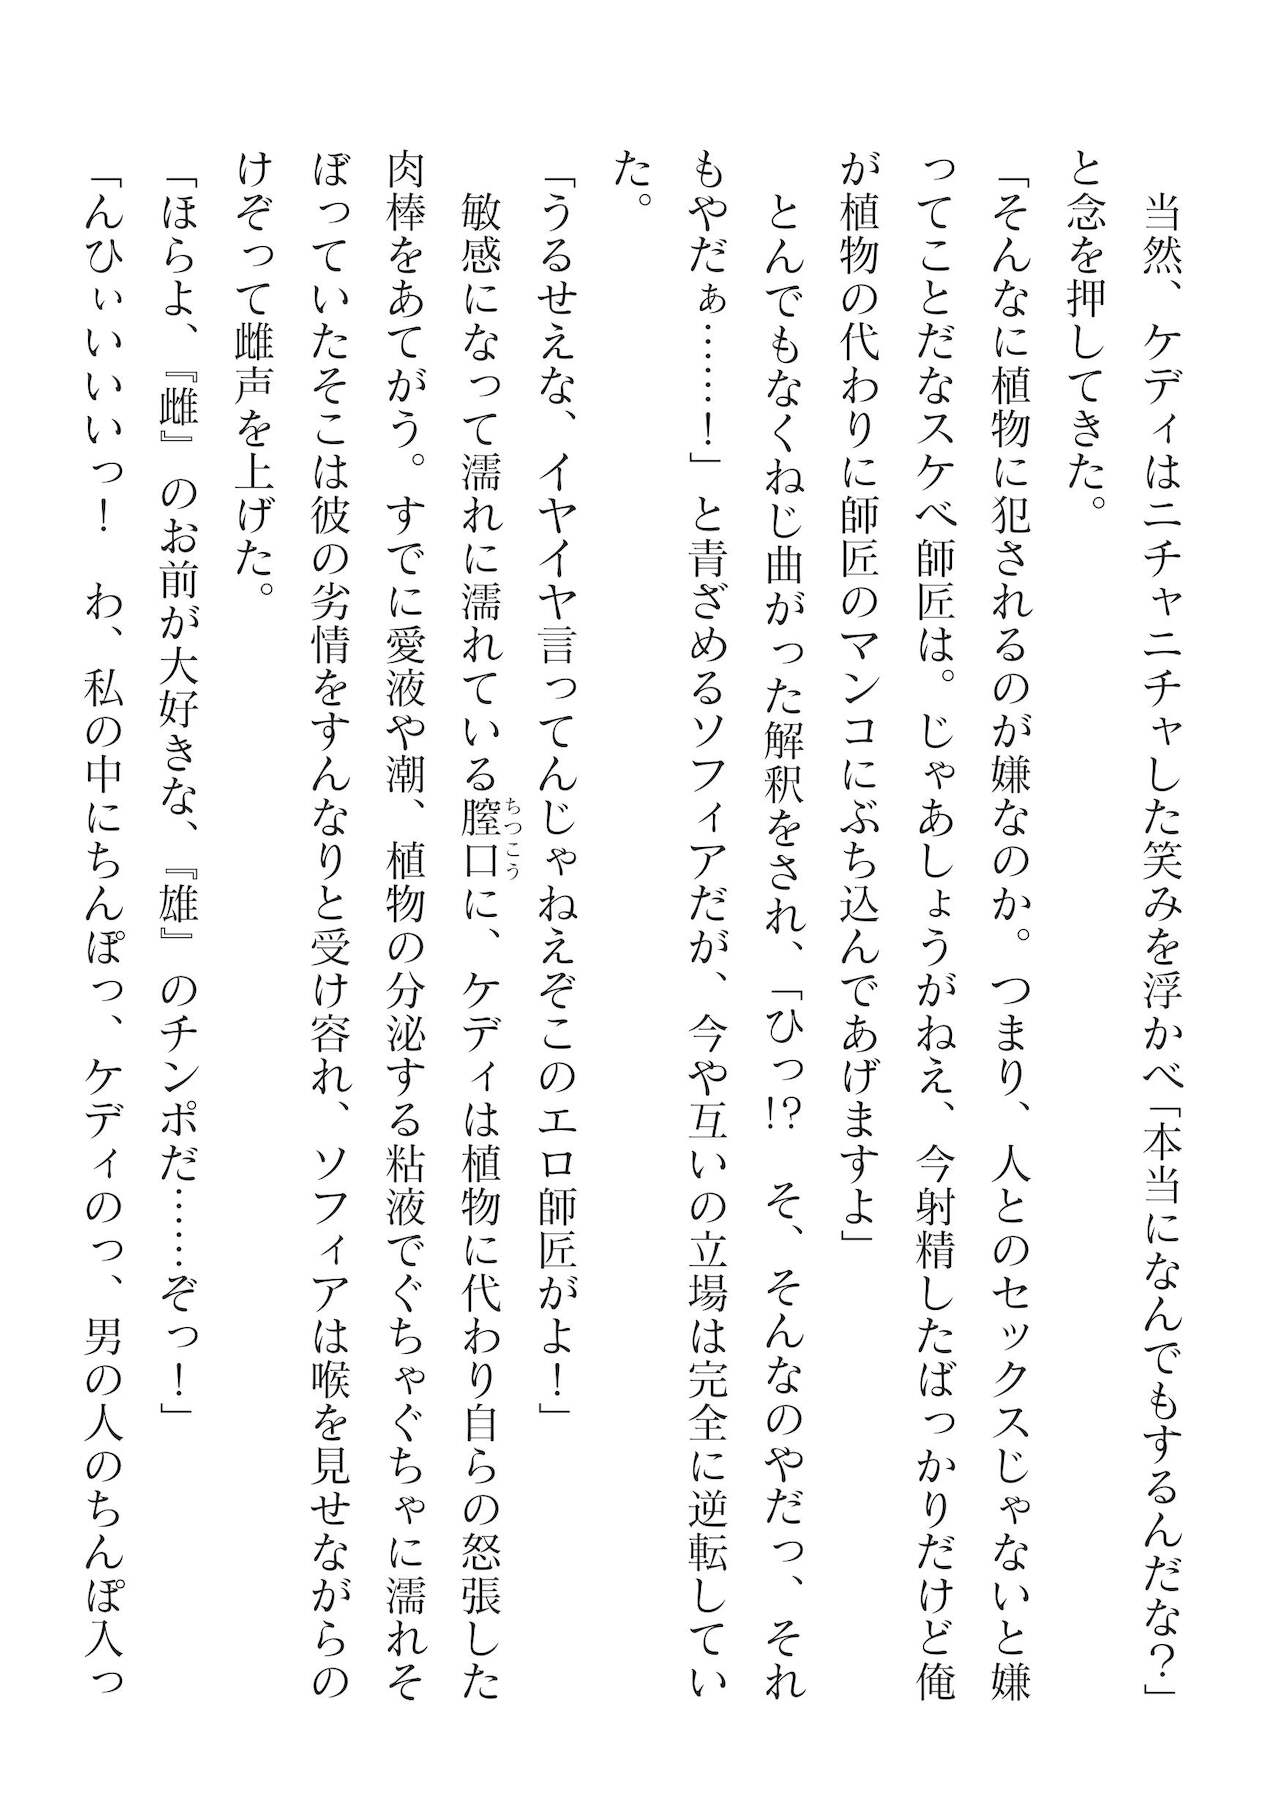 当然、ケディはニチャニチャした笑みを浮かべ「本当になんでもするんだな？」
と念を押してきた。
「そんなに植物に犯されるのが嫌なのか。つまり、人とのセックスじゃないと嫌
ってことだなスケベ師匠は。じゃあしょうがねえ、今射精したばっかりだけど俺
が植物の代わりに師匠のマンコにぶち込んであげますよ」
とんでもなくねじ曲がった解釈をされ、「ひっ!?　そ、そんなのやだっ、それ
もやだぁ……！」と青ざめるソフィアだが、今や互いの立場は完全に逆転してい
た。
「うるせえな、イヤイヤ言ってんじゃねえぞこのエロ師匠がよ！」
敏感になって濡れに濡れている膣口に、ケディは植物に代わり自らの怒張した
ちつこう
肉棒をあてがう。すでに愛液や潮、植物の分泌する粘液でぐちゃぐちゃに濡れそ
ぼっていたそこは彼の劣情をすんなりと受け容れ、ソフィアは喉を見せながらの
けぞって雌声を上げた。
「ほらよ、『雌』のお前が大好きな、『雄』のチンポだ……ぞっ！」
「んひぃいいいっ！　わ、私の中にちんぽっ、ケディのっ、男の人のちんぽ入っ